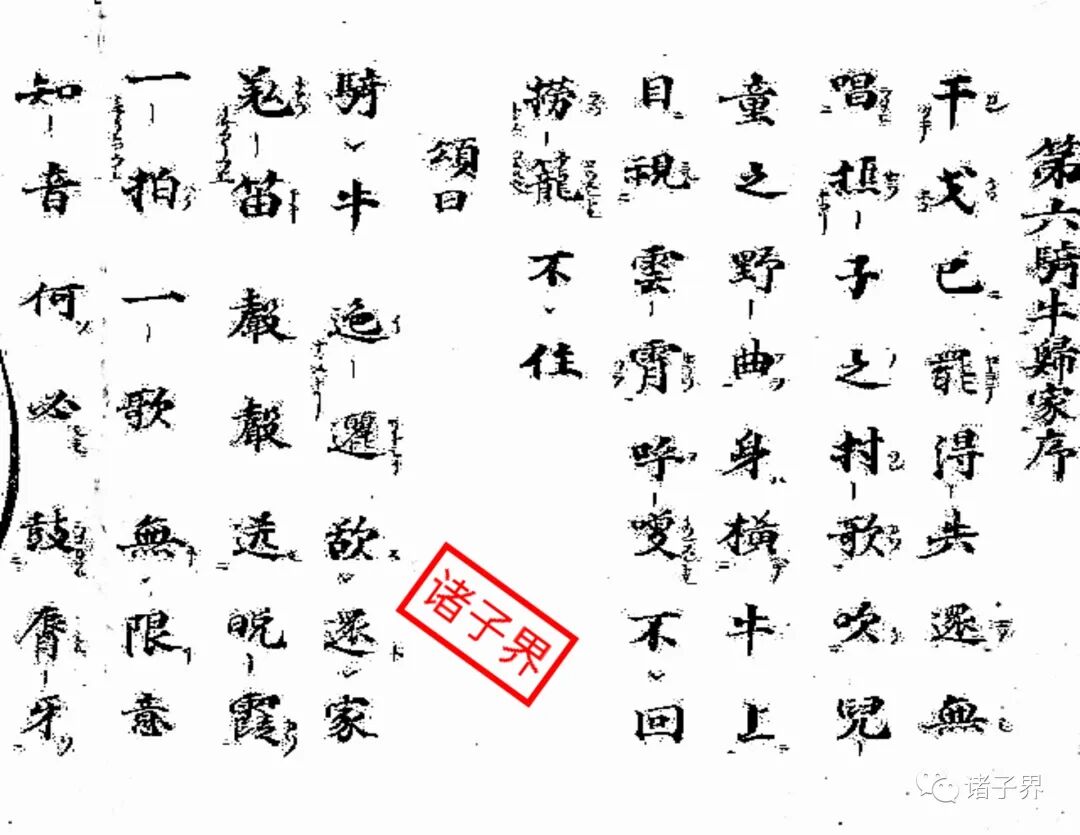 第六騎牛歸家序
干戈已罷得失還無
唱樵子之村歌吹兒
童之野曲身橫牛上
目視雲霄呼喚不回
撈籠不住
頌曰
騎牛迤邐欲還家
羌笛聲聲送晚霞
一拍一歌無限意
知音何必鼓唇牙
诸子界
诸子界